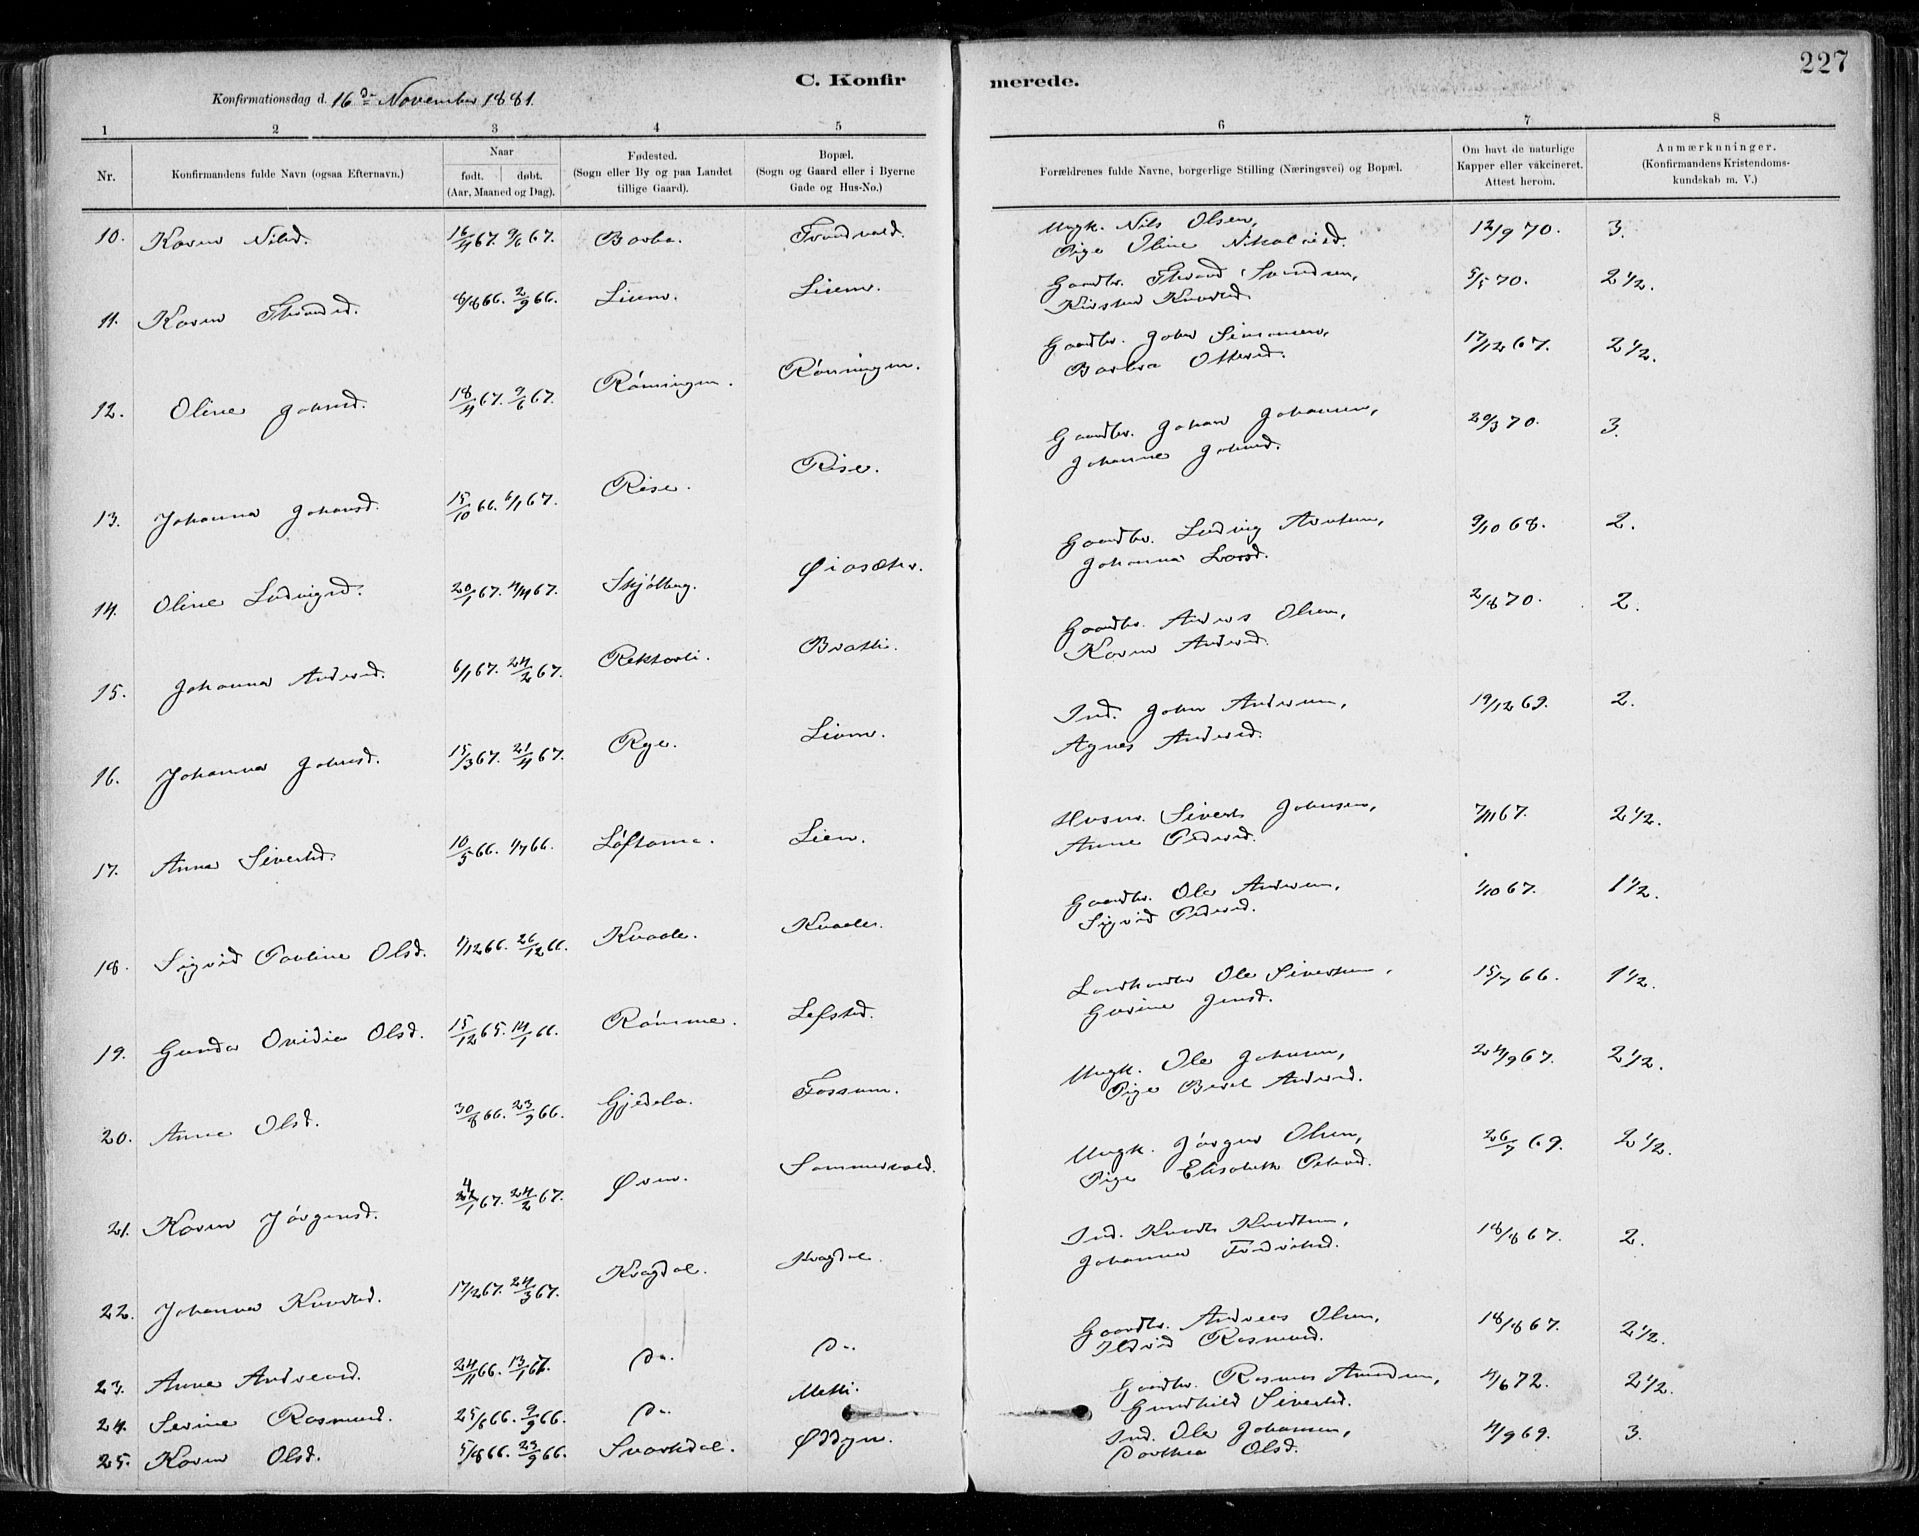 C. Konfirmerede.
227
Konfirmationsdag d. 16de November 1881.
1 2 3 4 5 6 7 8
Nr. Konfirmandens fulde Navn (ogsaa Efternavn.) Naar født. døbt. (Aar, Maaned og Dag). Fødested. (Sogn eller By og paa Landet tillige Gaard). Bopæl. (Sogn og Gaard eller i Byerne Gade og Hus-No.) Forældrenes fulde Navne, borgerlige Stilling (Næringsvei) og Bopæl. Om havt de naturlige Kapper eller vakcineret. Attest herom. Anmærkninger. (Konfirmandens Kristendomskundskab m. V.)
10. Karen Nilsd. 16/4 67. 9/6 67. Ungk. Nils Olsen, 12/9 70. 3.
Pige Oline
11. Karen 8/8 66. 2/9 66. Lien. Gaardbr. 5/5 70. 2 1/2.
Kirsten Knudsd.
12. Oline Johnsd. 18/4 67. 9/6 67. Rønningen. Rønningen. Gaardbr. John Simonsen, 17/12 67. 2 1/2.
Barbra
13. Johanna Johansd. 15/10 66. 6/1 67. Rise. Rise. Gaardbr. Johan Johansen, 20/3 70. 3.
Johanne Johnsd.
14. Oline Ludvigsd. 20/1 67. 4/4 67. Skjølberg. Gaardbr. Ludvig Arntsen, 9/10 68. 2.
Johanna Larsd.
15. Johanna Andersd. 6/1 67. 24/2 67. Gaardbr. Anders Olsen, 2/8 70. 2.
Karen Andersd.
16. Johanna Johnsd. 15/3 67. 21/4 67. Rye. Ind. John Andersen, 19/12 69. 2.
Agnes Andersd.
17. Anna Sivertsd. 10/5 66. 1/7 66. Løftamo. Lien. Husm. Sivert Johnsen, 7/11 67. 2 1/2.
Anne Pedersd.
18. Sigrid Pauline Olsd. 1/12 66. 26/12 66. Kvaale. Kvaale. Gaardbr. Ole Andersen, 1/10 67. 1 1/2.
Sigrid Pedersd.
19. Gunda Ovidia Olsd. 15/12 65. 14/1 66. Rømme. Lefstad. Landhandler Ole Sivertsen, 15/7 66. 1 1/2.
Gurine Jensd.
20. Anne Olsd. 30/8 66. 23/9 66. Fossum. Ungk. Ole Johnsen, 24/9 67. 2 1/2.
Pige Beret Andersd.
21. Karen Jørgensd. 67. 24/2 67. Ungk. Jørgen Olsen, 26/7 69. 2 1/2.
Pige Elisabeth
22. Johanna Knudsd. 17/2 67. 24/3 67. Kragdal. Kragdal. Ind. Knud Knudsen, 18/8 67. 2.
Johanna
23. Anne Andreasd. 24/11 66. 13/1 67. Do. Do. Gaardbr. Andreas Olsen, 18/8 67. 2 1/2.
Ildrid Rasmusd.
24. Serine Rasmusd. 25/6 66. 9/9 66. Do. Metli. Gaardbr. Rasmus Amundsen, 4/6 72. 2 1/2.
Gundhild Sivertsd.
25. Karen Olsd. 5/8 66. 23/9 66. Svartdal. Ind. Ole Johansen, 4/9 69. 3.
Dorthea Olsd.